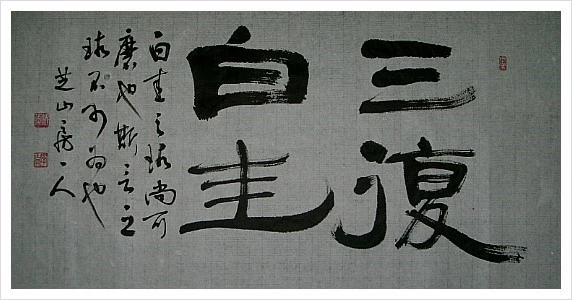 三復
白圭
白圭之玷尚可
磨也斯言之
玷不可為也
芝山房一人